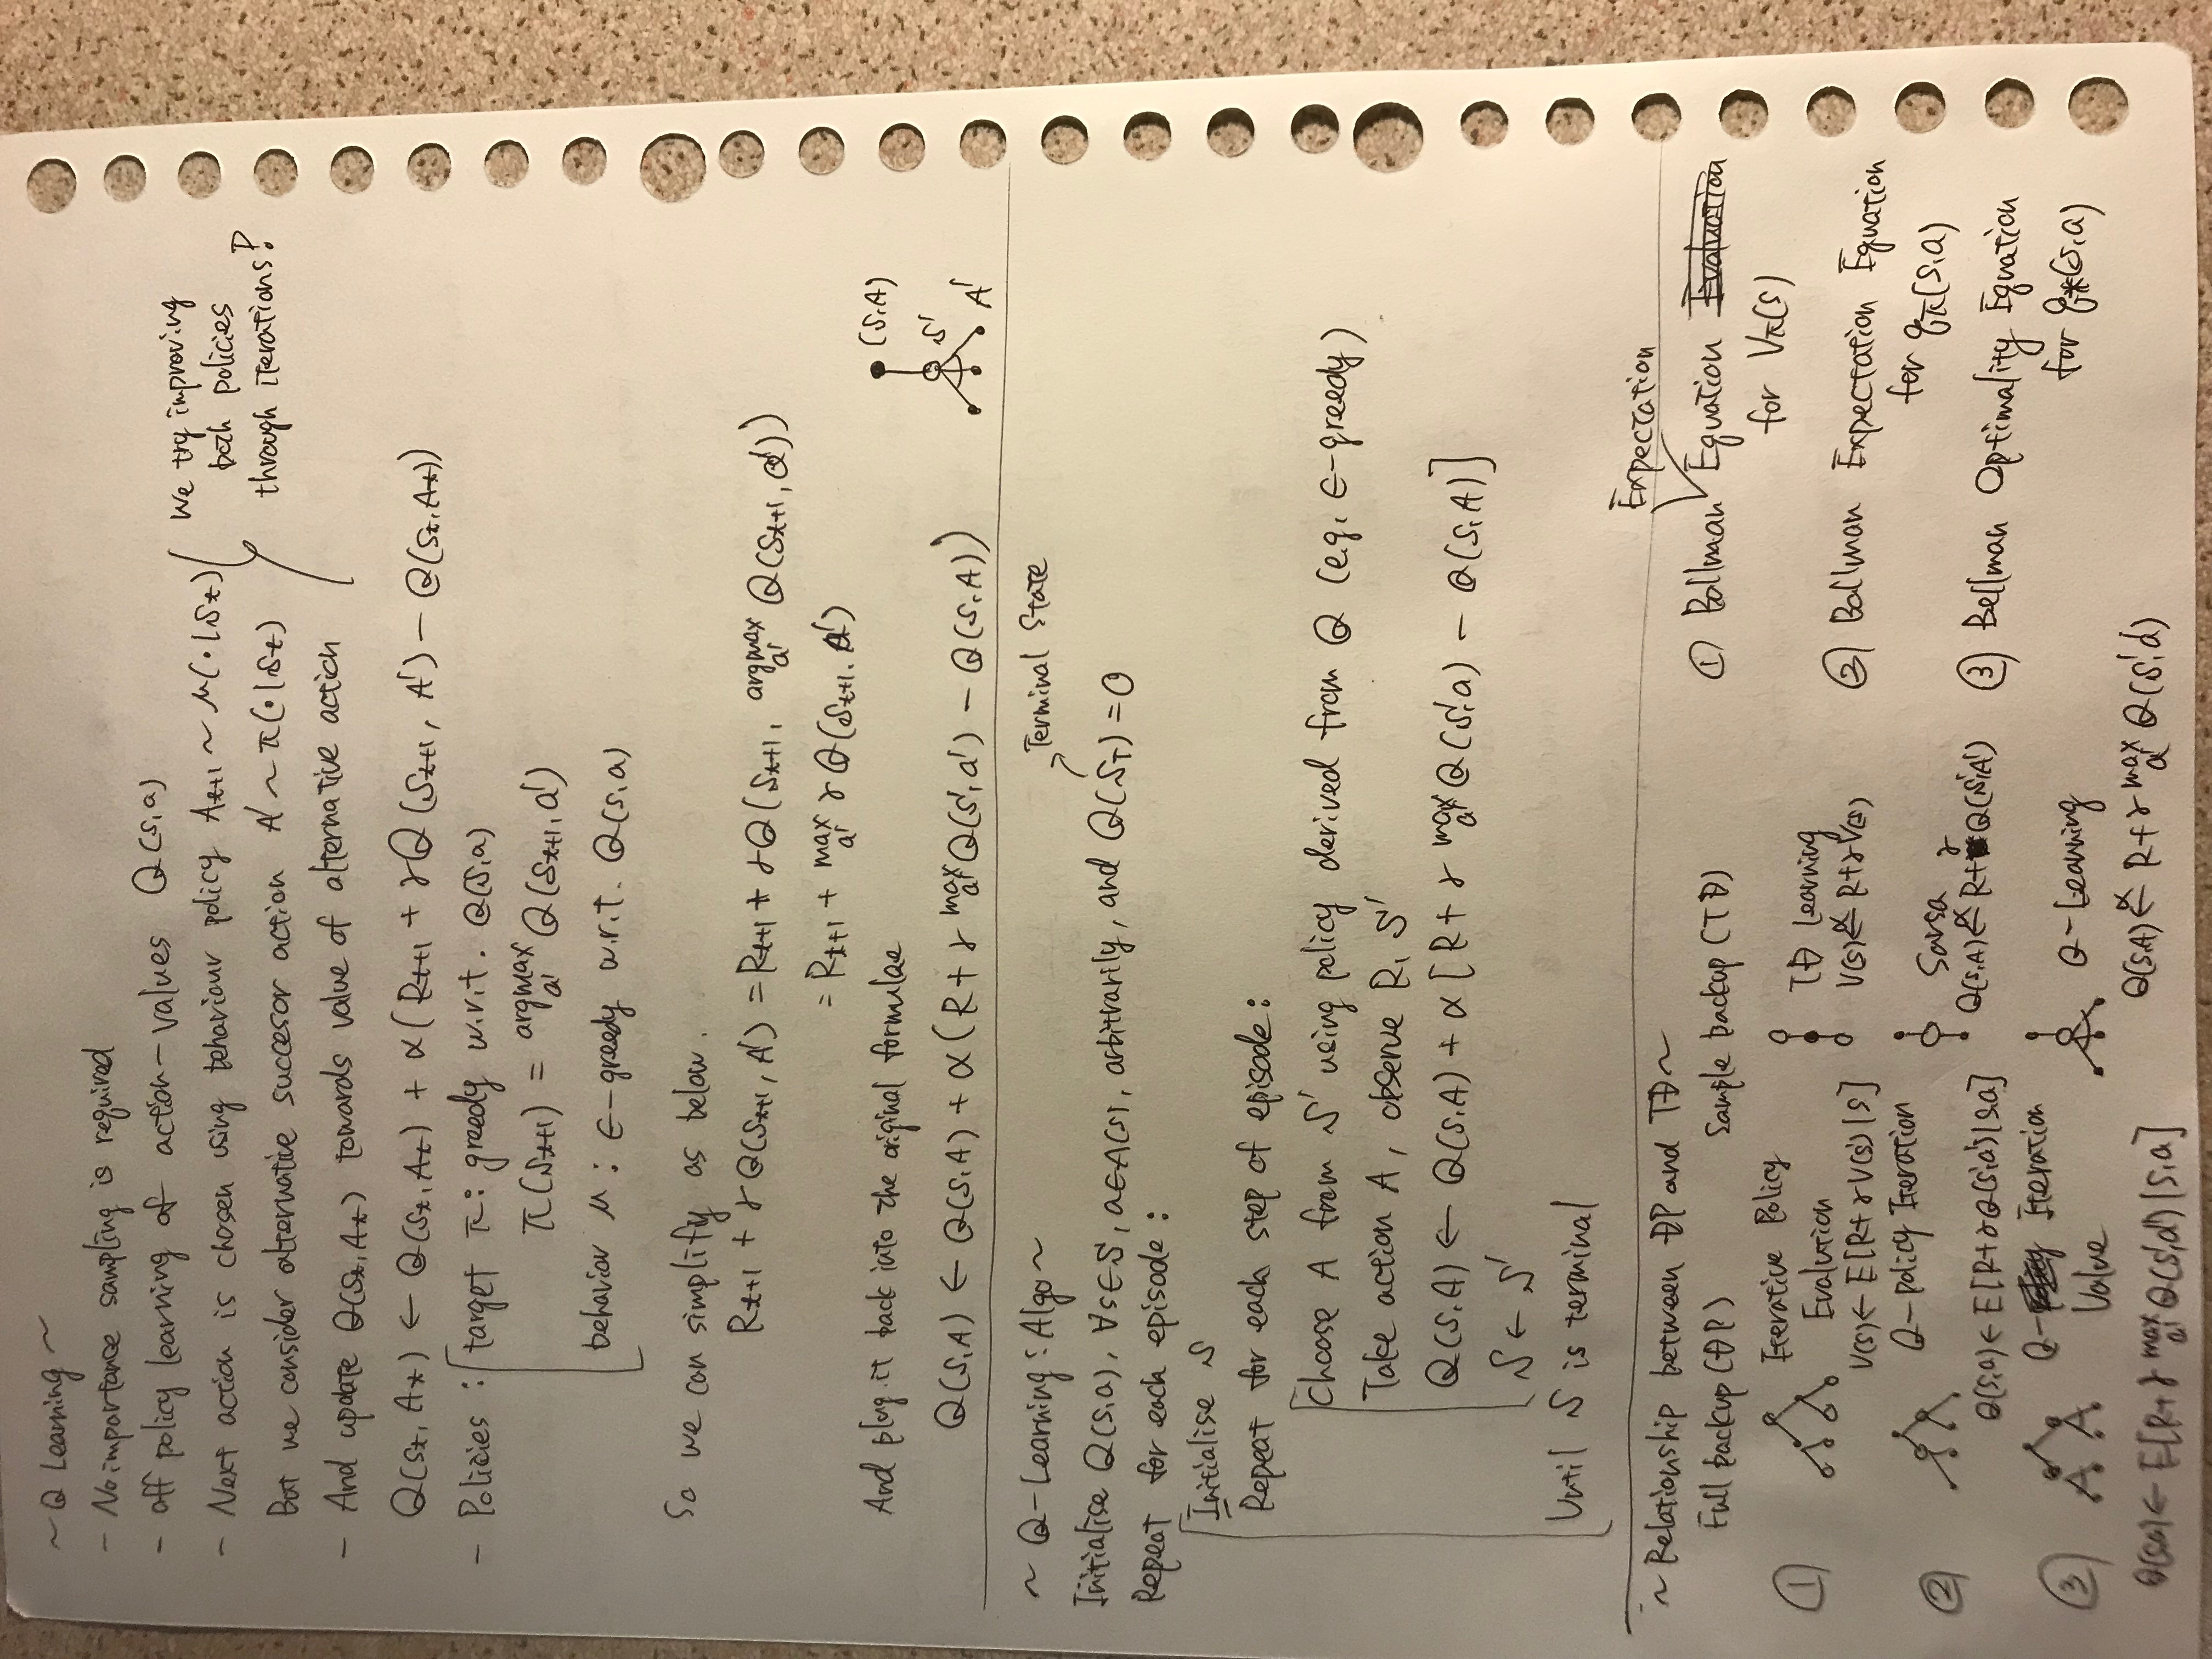 ~ Q Learning ~
- No importance sampling is required
- off policy learning of action-values Q(s,a)
- Next action is chosen using behaviour policy A_{t+1} ~ μ(·|S_t)
But we consider alternative succesor action A' ~ π(·|S_t)
- And update Q(S_t, A_t) towards value of alternative action
We try improving
both policies
through iterations?
Q(S_t, A_t) ← Q(S_t, A_t) + α(R_{t+1} + γQ(S_{t+1}, A') - Q(S_t, A_t))
- Policies : target π: greedy w.r.t. Q(s,a)
π(S_{t+1}) = argmax_{a'} Q(S_{t+1}, a')
behavior μ : ε-greedy w.r.t. Q(s,a)
So we can simplify as below.
R_{t+1} + γQ(S_{t+1}, A') = R_{t+1} + γQ(S_{t+1}, argmax_{a'} Q(S_{t+1}, a'))
= R_{t+1} + max_{a'} γQ(S_{t+1}, a')
And plug it back into the original formulae
Q(S,A) ← Q(S,A) + α(R + γ max_{a'} Q(S',a') - Q(S,A))
(S,A)
S'
A'
~ Q-Learning : Algo ~
Terminal State
Initialise Q(s,a), ∀s∈S, a∈A(s), arbitrarily, and Q(S_T) = 0
Repeat for each episode :
Initialise S
Repeat for each step of episode :
Choose A from S' using policy derived from Q (e.g. ε-greedy)
Take action A, observe R, S'
Q(S,A) ← Q(S,A) + α[R + γ max_{a'} Q(S',a) - Q(S,A)]
S ← S'
Until S is terminal
~ Relationship between DP and TD ~
Full backup (DP) Sample backup (TD)
① Iterative Policy
Evalution
V(s) ← E[R + γV(s') | s]
TD Learning
V(s) ←^α R + γV(s)
② Q-policy Iteration
Q(s,a) ← E[R + γQ(s',a') | s,a]
Sarsa
Q(S,A) ←^α R + γQ(S',A')
③ Q- Iteration
Value
Q(s,a) ← E[R + γ max_{a'} Q(s',a') | s,a]
Q-Learning
Q(S,A) ←^α R + γ max_{a'} Q(S',a')
Expectation
① Bollman Equation
for V_π(s)
② Bollman Expectation Equation
for q_π(s,a)
③ Bellman Optimality Equation
for q_*(s,a)